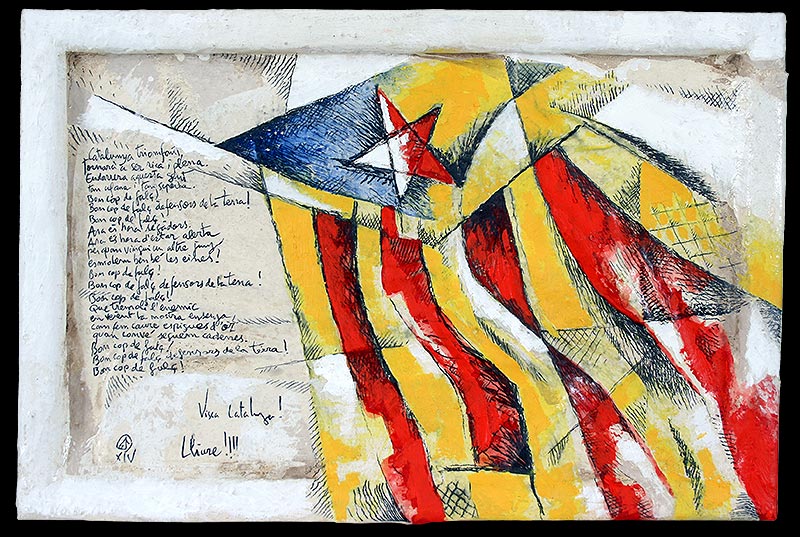 Catalunya triomfant,
tornarà a ser rica i plena
Endarrera aquesta gent
tan ufana i tan superba
Bon cop de falç!
Bon cop de falç defensors de la terra!
Bon cop de falç!
Ara és hora segadors.
Ara és hora d'estar alerta
per quan vingui un altre juny
esmolem ben bé les eines!
Bon cop de falç!
Bon cop de falç defensors de la terra!
Bon cop de falç!
Que tremoli l'enemic
en veient la nostra ensenya
com fem caure espigues d'or
quan convé seguem cadenes.
Bon cop de falç!
Bon cop de falç defensors de la terra!
Bon cop de falç!
Visca Catalunya!
Lliure!!!!
XIV